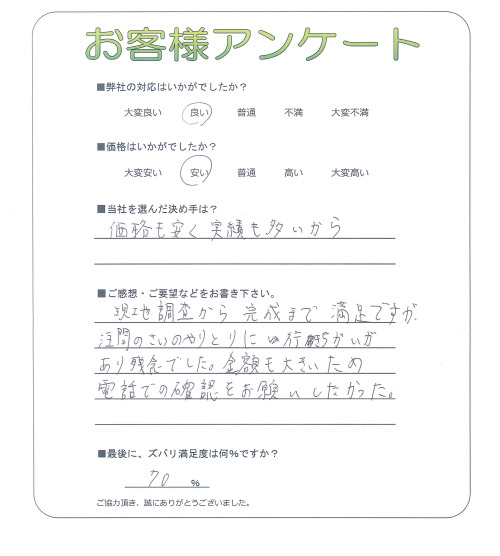 お客様アンケート
■弊社の対応はいかがでしたか?
大変良い 良い 普通 不満 大変不満
■価格はいかがでしたか?
大変安い 安い 普通 高い 大変高い
■当社を選んだ決め手は?
価格も安く実績も多いから
■ご感想・ご要望などをお書き下さい。
現地調査から完成まで満足ですが
注間のさいのやりとりに行きちがいが
あり残念でした。金額も大きいため
電話での確認をお願いしたかった。
■最後に、ズバリ満足度は何%ですか?
70 %
ご協力頂き、誠にありがとうございました。